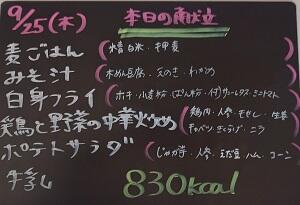 9/25(木) 本日の献立
麦ごはん (精白米・押麦
みそ汁 (木めん豆腐・えのき・わかめ
白身フライ (ホキ・小麦粉・パン粉・付)サニーレタス・ミニトマト
鶏と野菜の中華炒め (鶏肉・人参・もやし・生姜
キャベツ・きくらげ・ニラ
ポテトサラダ (じゃが芋・人参・玉葱・ハム・コーン
牛乳 830kcal